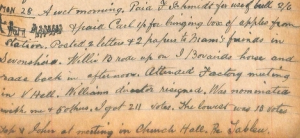 28 A wet morning. Paid A Schmidt for use of bull 2/6
& paid Carl p for bringing box of apples from
Station. Posted 2 letters & 2 papers to Mam's friends in
Devonshire. Willie B rode up on J Bovaird's horse and
rode back in afternoon. Attended Factory meeting
in V Hall. William director resigned. Was nominated
with me & 5 others & got 211 votes. The lowest was 18 votes
& John at meeting in Church Hall. Re Tableu.